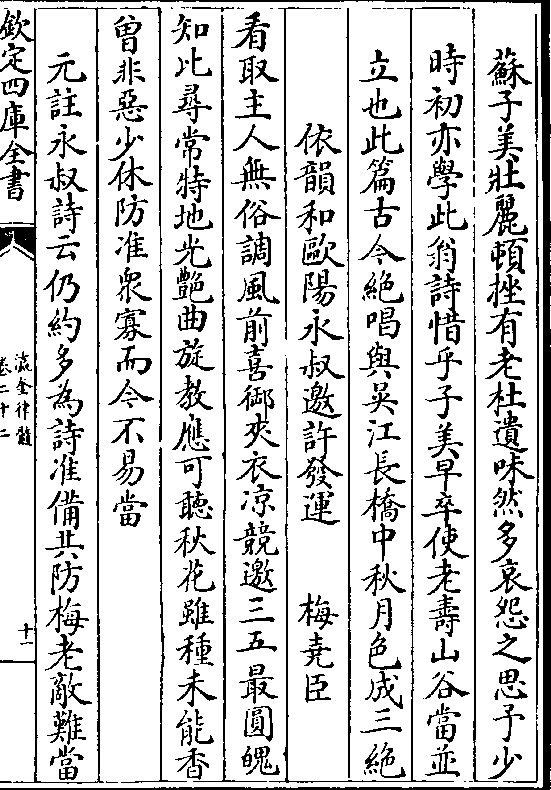 蘇子美壯麗頓挫有老杜遺味然多哀怨之思予少
時初亦學此翁詩惜乎子美早卒使老壽山谷當並
立也此篇古今絶唱與吴江長橋中秋月色成三絶
依韻和歐陽永叔邀許發運 梅堯臣
看取主人無俗調風前喜御夾衣凉競邀三五最圓魄
知比尋常特地光艷曲旋教應可聽秋花雖種未能香
曾非惡少休防准衆寡而今不易當
元註永叔詩云仍約多為詩准備共防梅老敵難當
欽定四庫全書
瀛奎律髓
卷二十二
十一